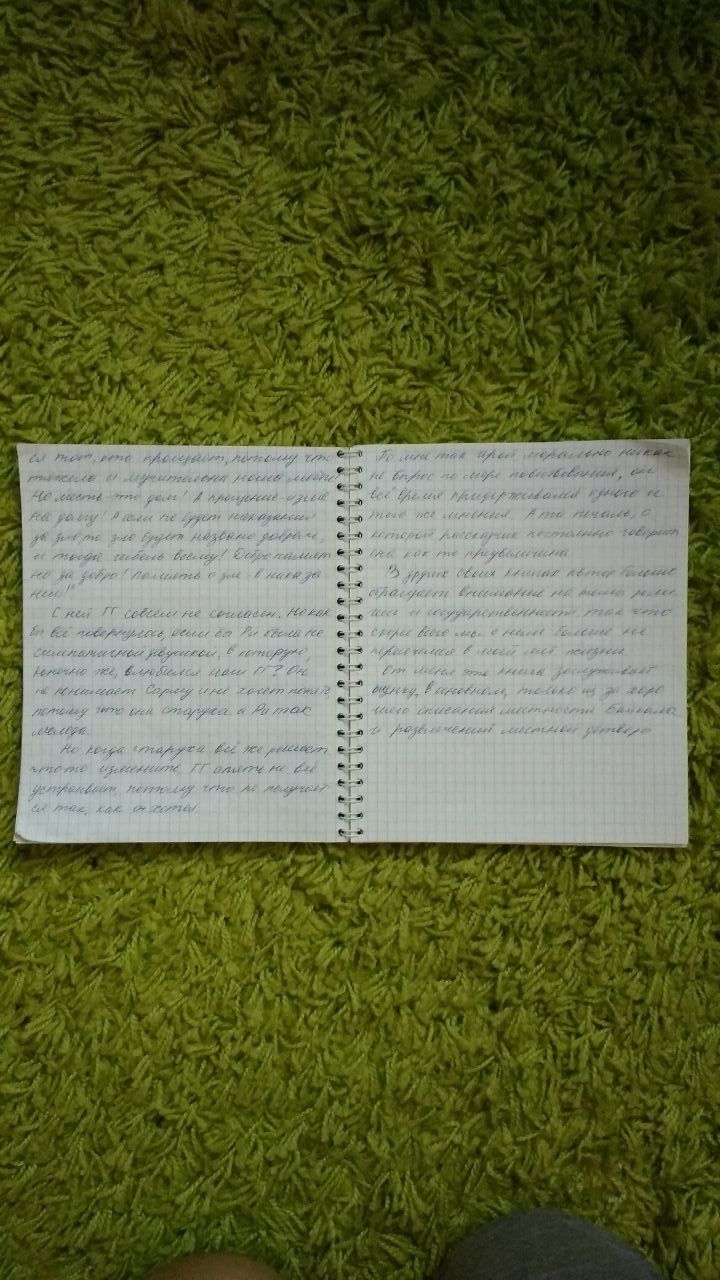 ся тот, кто прощает, потому что
тяжела и мучительна ноша мести.
Но месть-это долг! А прощение-измена
долгу! А если не будет наказания
за зло, то зло будет названо добром,
и тогда гибель всему! Добро памятно
за добро! Память о зле-в наказании!"
С ней ГГ совсем не согласен. Но как
бы всё повернулось, если бы Ри была не
симпатичной девушкой, в которую,
конечно же, влюбился наш ГГ? Он
не понимает Сарму и не хочет понять
потому что она старуха, а Ри так
молода.
Но когда старуха всё же решает
что-то изменить, ГГ опять не всё
устраивает, потому что не получает
ся так, как он хотел.
По мне так герой морально никак
не вырос по мере повествования, он
всё время придерживался одного и
того же мнения. А та печаль, о
которой рассказчик постоянно говорит
она как то преувеличина.
В других своих книгах автор больше
обращает внимание на темы рели
гии и государственности так что
скорее всего мы с ним больше не
пересечемся в моей жизни.
От меня эта книга заслуживает
оценку, в основном, только из за хоро
шего описания местности Байкала
и развлечений местной детворы